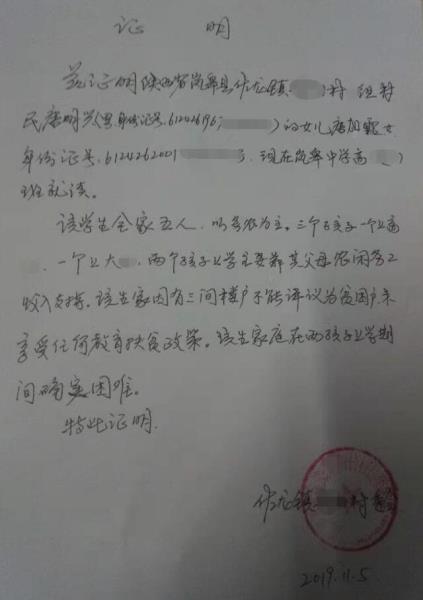 证 明
兹证明陕西省岚皋县佐龙镇 村 组村
民唐明兴(男身份证号.612426196 )的女儿唐加霖女
身份证号.6124262001 3.现在岚皋中学高( )
班就读。
该学生全家五人.以务农为主。三个孩子一个上高
.一个上大 .两个孩子上学主要靠其父母农闲务工
收入支持。该生家因有三间楼户不能评议为贫困户未
享受任何教育扶贫政策。该生家庭在两孩子上学期
间确实困难。
特此证明.
佐龙镇 村委会
2019.11.5